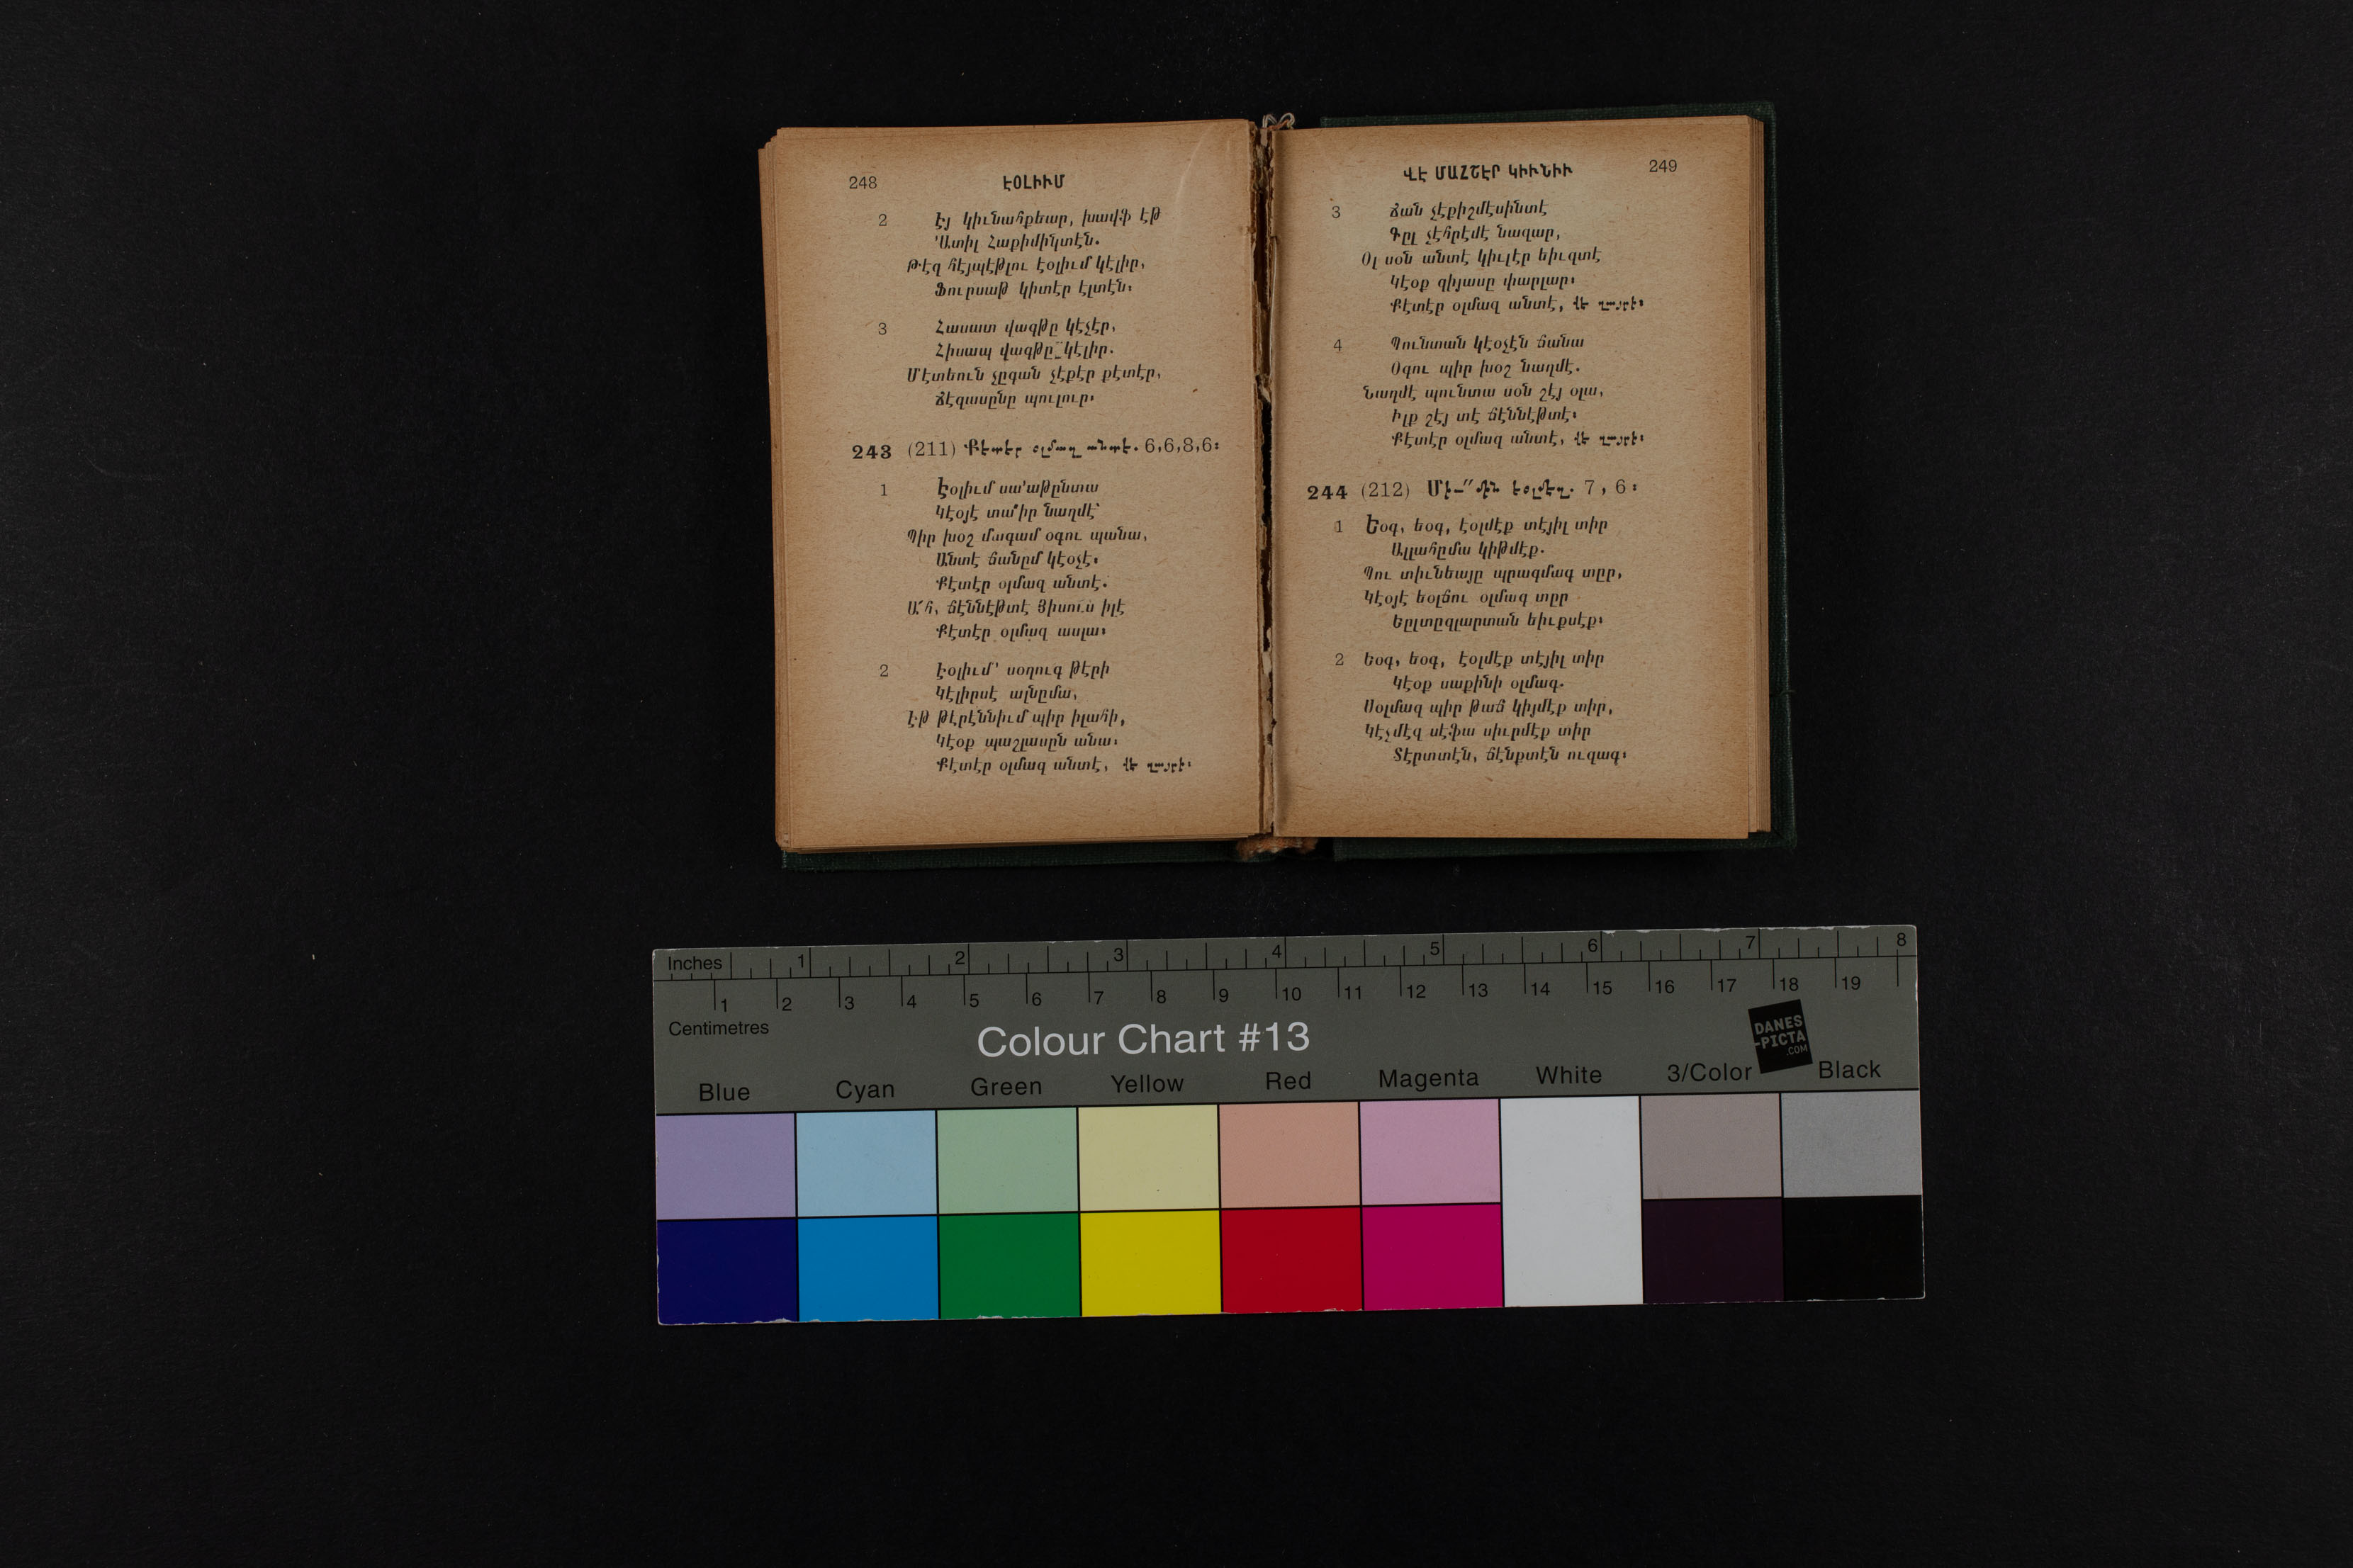 248 ԷՕԼԻՒՄ
2 Էյ կիւնահքեար, խավֆ էթ
՚Ատիլ Հաքիմինտէն.
Թէզ հէյպէթլու էօլիւմ կէլիր,
Ֆուրսաթ կիտէր էլտէն։
3 Հասատ վագթը կէչէր,
Հիսապ վագթը կէլիր.
Մէտեուն չըգան չէքէր քէտէր,
Ճէզասընը պուլուր։
243 (211) Քէտէր օլմազ անտէ. 6,6,8,6։
1 Էօլիւմ սա՚աթընտա
Կէօյէ տա՚իր նաղմէ
Պիր խօշ մագամ օգու պանա,
Անտէ ճանըմ կէօչէ։
Քէտէր օլմազ անտէ.
Ա՜հ, ճէննէթտէ Յիսուս իլէ
Քէտէր օլմազ ասլա։
2 Էօլիւմ՚ սօղուգ թէրի
Կէլիրսէ ալնըմա,
Էթ թէրէննիւմ պիր իլահի,
Կէօք պաշլասըն անա։
Քէտէր օլմազ անտէ, վե ղայրէ։
ՎԷ ՄԱՀՇԷՐ ԿԻՒՆԻՒ 249
3 Ճան չէքիշմէսինտէ
Գըլ չէհրէմէ նազար,
Օլ սօն անտէ կիւլէր եիւզտէ
Կէօք զիյասը փարլար։
Քէտէր օլմազ անտէ, վե ղայրէ։
4 Պունտան կէօչէն ճանա
Օգու պիր խօշ նաղմէ.
Նաղմէ պունտա սօն շէյ օլա,
Իլք շէյ տէ ճէննէթտէ։
Քէտէր օլմազ անտէ, վե ղայրէ։
244 (212) 7, 6։
1 Եօգ, եօգ, էօլմէք տէյիլ տիր
Ալլահըմա կիթմէք.
Պու տիւնեայը պրագմագ տըր,
Կէօյէ եօլճու օլմագ տըր
Եըլտըզլարտան եիւքսէք։
2 Եօգ, եօգ, էօլմէք տէյիլ տիր
Կէօք սաքինի օլմագ.
Սօլմազ պիր թաճ կիյմէք տիր,
Կէչմէզ սէֆա սիւրմէք տիր
Տէրտտէն, ճէնքտէն ուզագ։
Inches 1 2 3 4 5 6 7 8
1 2 3 4 5 6 7 8 9 10 11 12 13 14 15 16 17 18 19
Centimetres
Colour Chart #13
DANES
-PICTA
.COM
Blue Cyan Green Yellow Red Magenta White 3/Color Black